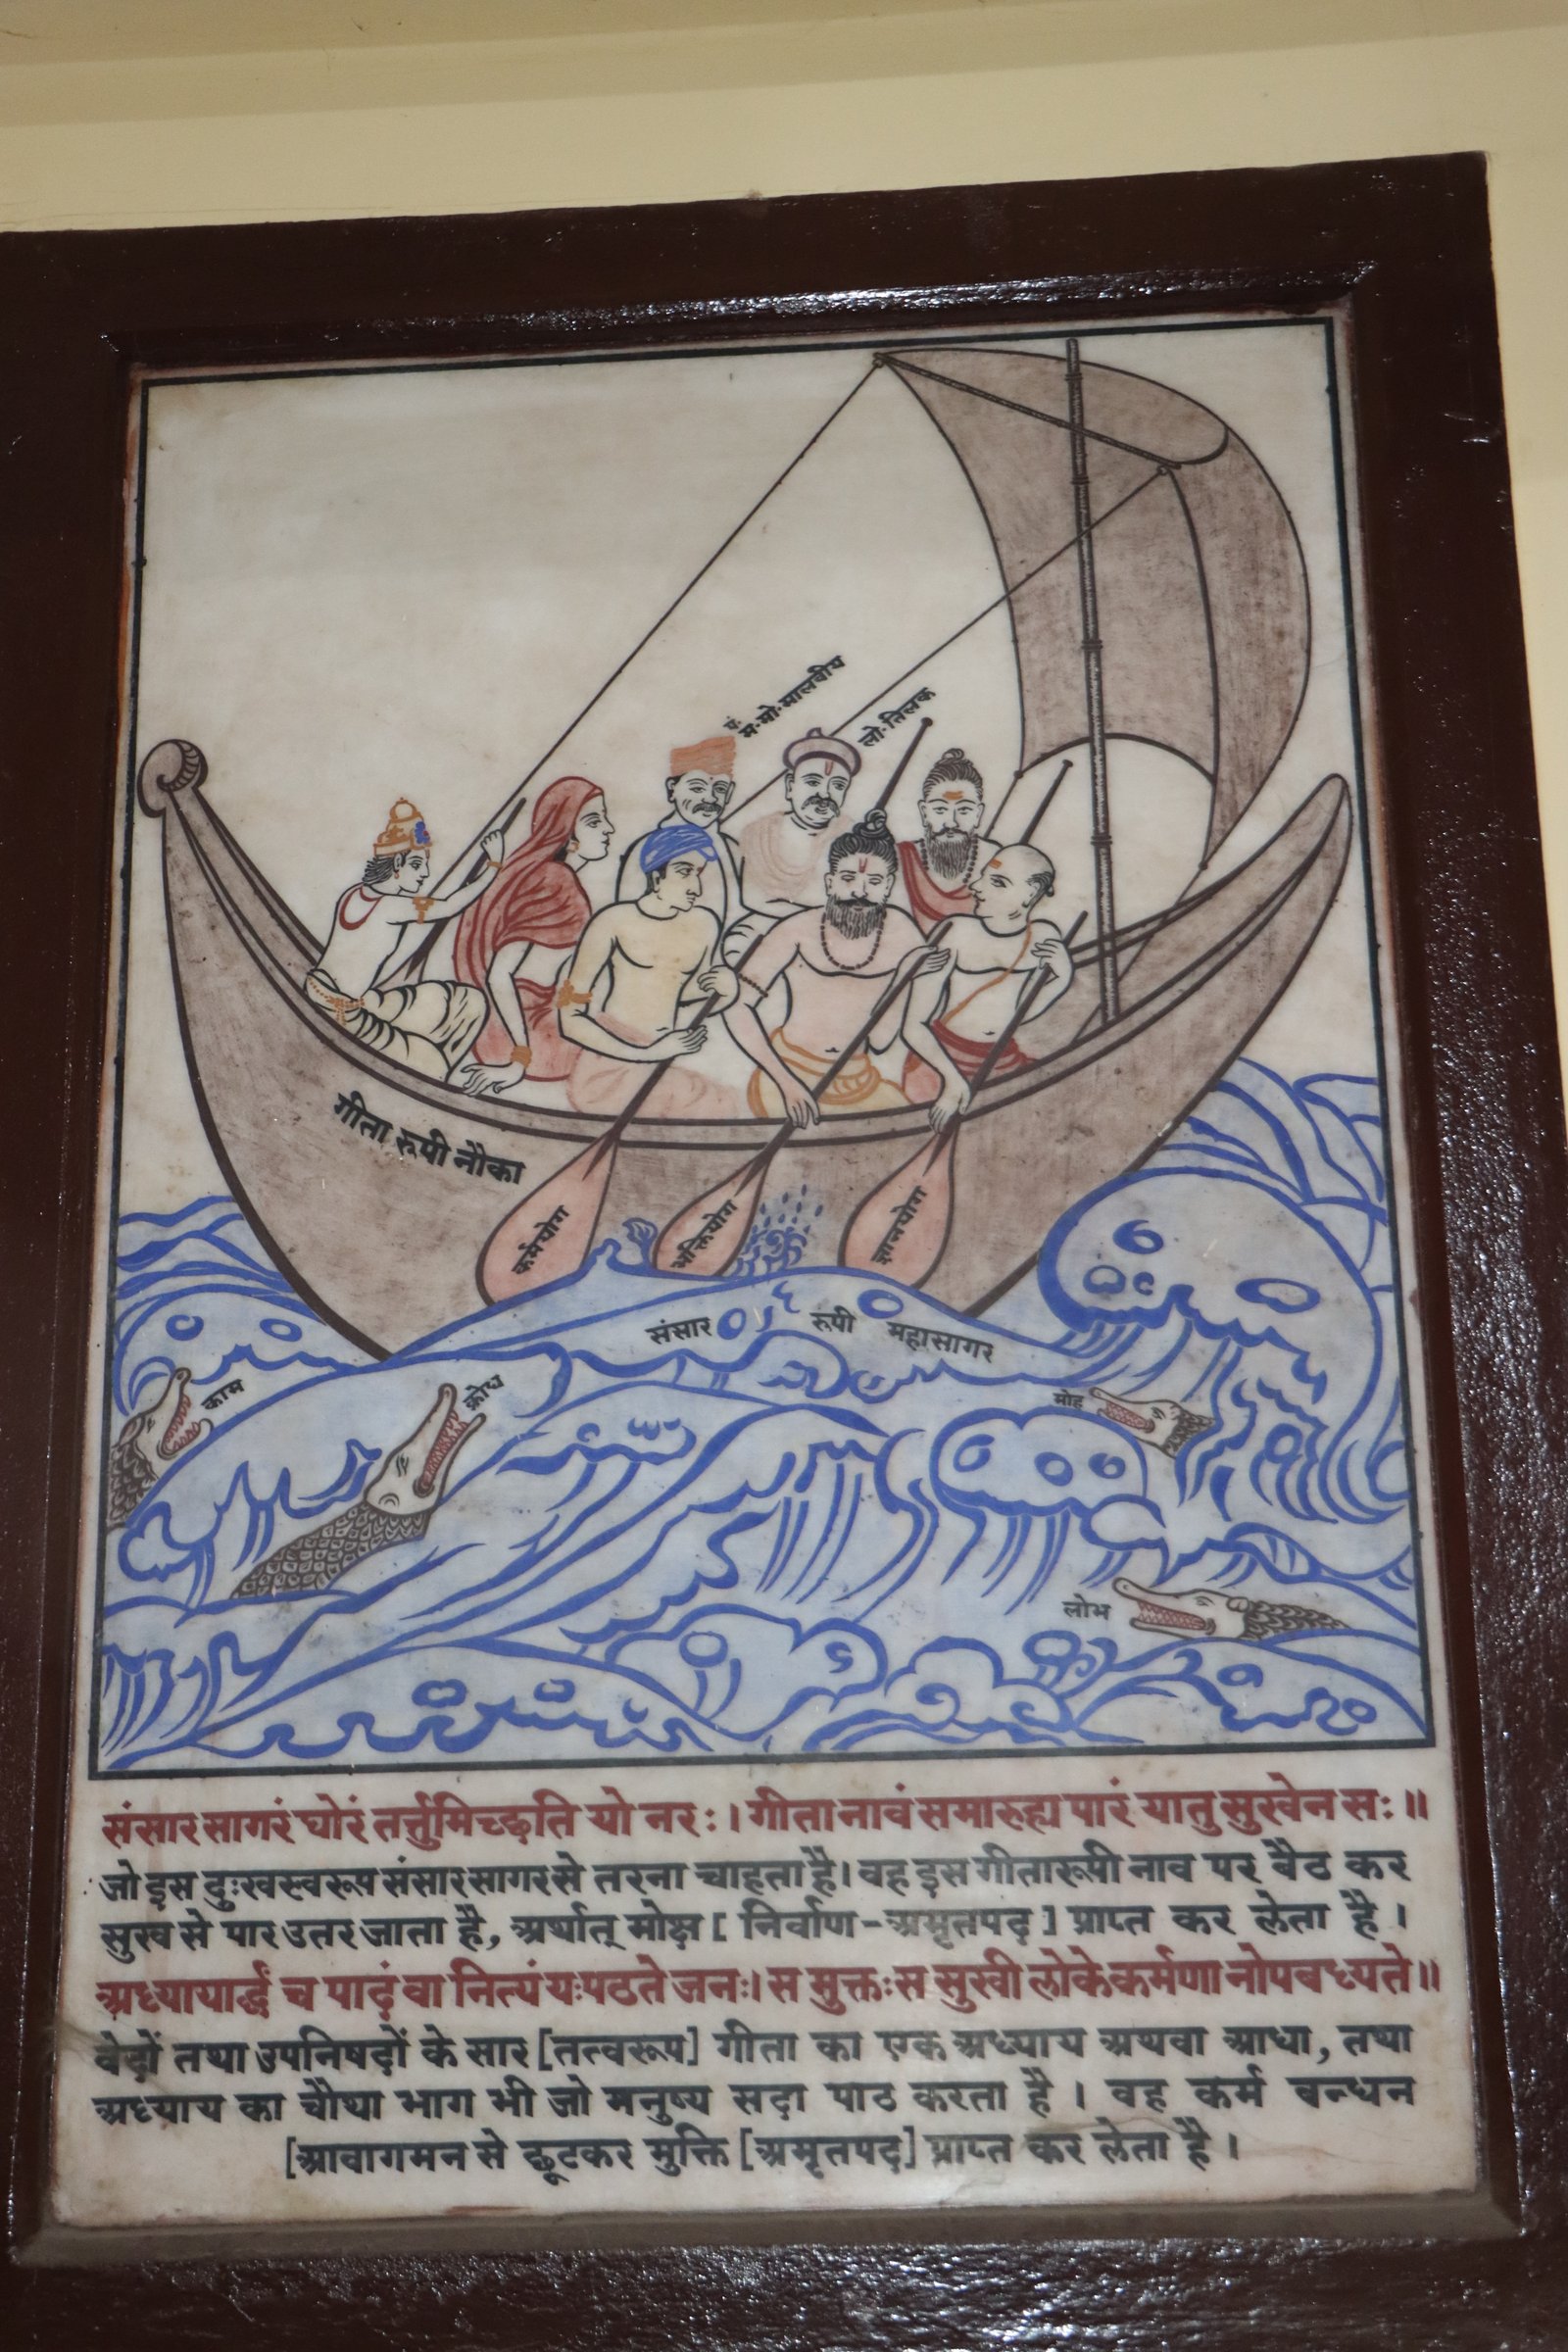 पं.
म॰मो॰मालवीय
लो॰तिलक
गीता रूपी नौका
कर्मयोग
भक्तियोग
ज्ञानयोग
संसार रूपी महासागर
काम
क्रोध
मोह
लोभ
संसार सागरं घोरं तर्त्तुमिच्छति यो नरः। गीता नावं समारुह्य पारं यातु सुखेन सः॥
जो इस दुःखस्वरूप संसारसागर से तरना चाहता है। वह इस गीतारूपी नाव पर बैठ कर
सुख से पार उतर जाता है, अर्थात् मोक्ष [ निर्वाण-अमृतपद ] प्राप्त कर लेता है।
अध्यायार्द्धं च पादं वा नित्यं यः पठते जनः। स मुक्तः स सुखी लोके कर्मणा नोपबध्यते॥
वेदों तथा उपनिषदों के सार [तत्वरूप] गीता का एक अध्याय अथवा आधा, तथा
अध्याय का चौथा भाग भी जो मनुष्य सदा पाठ करता है। वह कर्म बन्धन
[आवागमन से छूटकर मुक्ति [अमृतपद] प्राप्त कर लेता है।